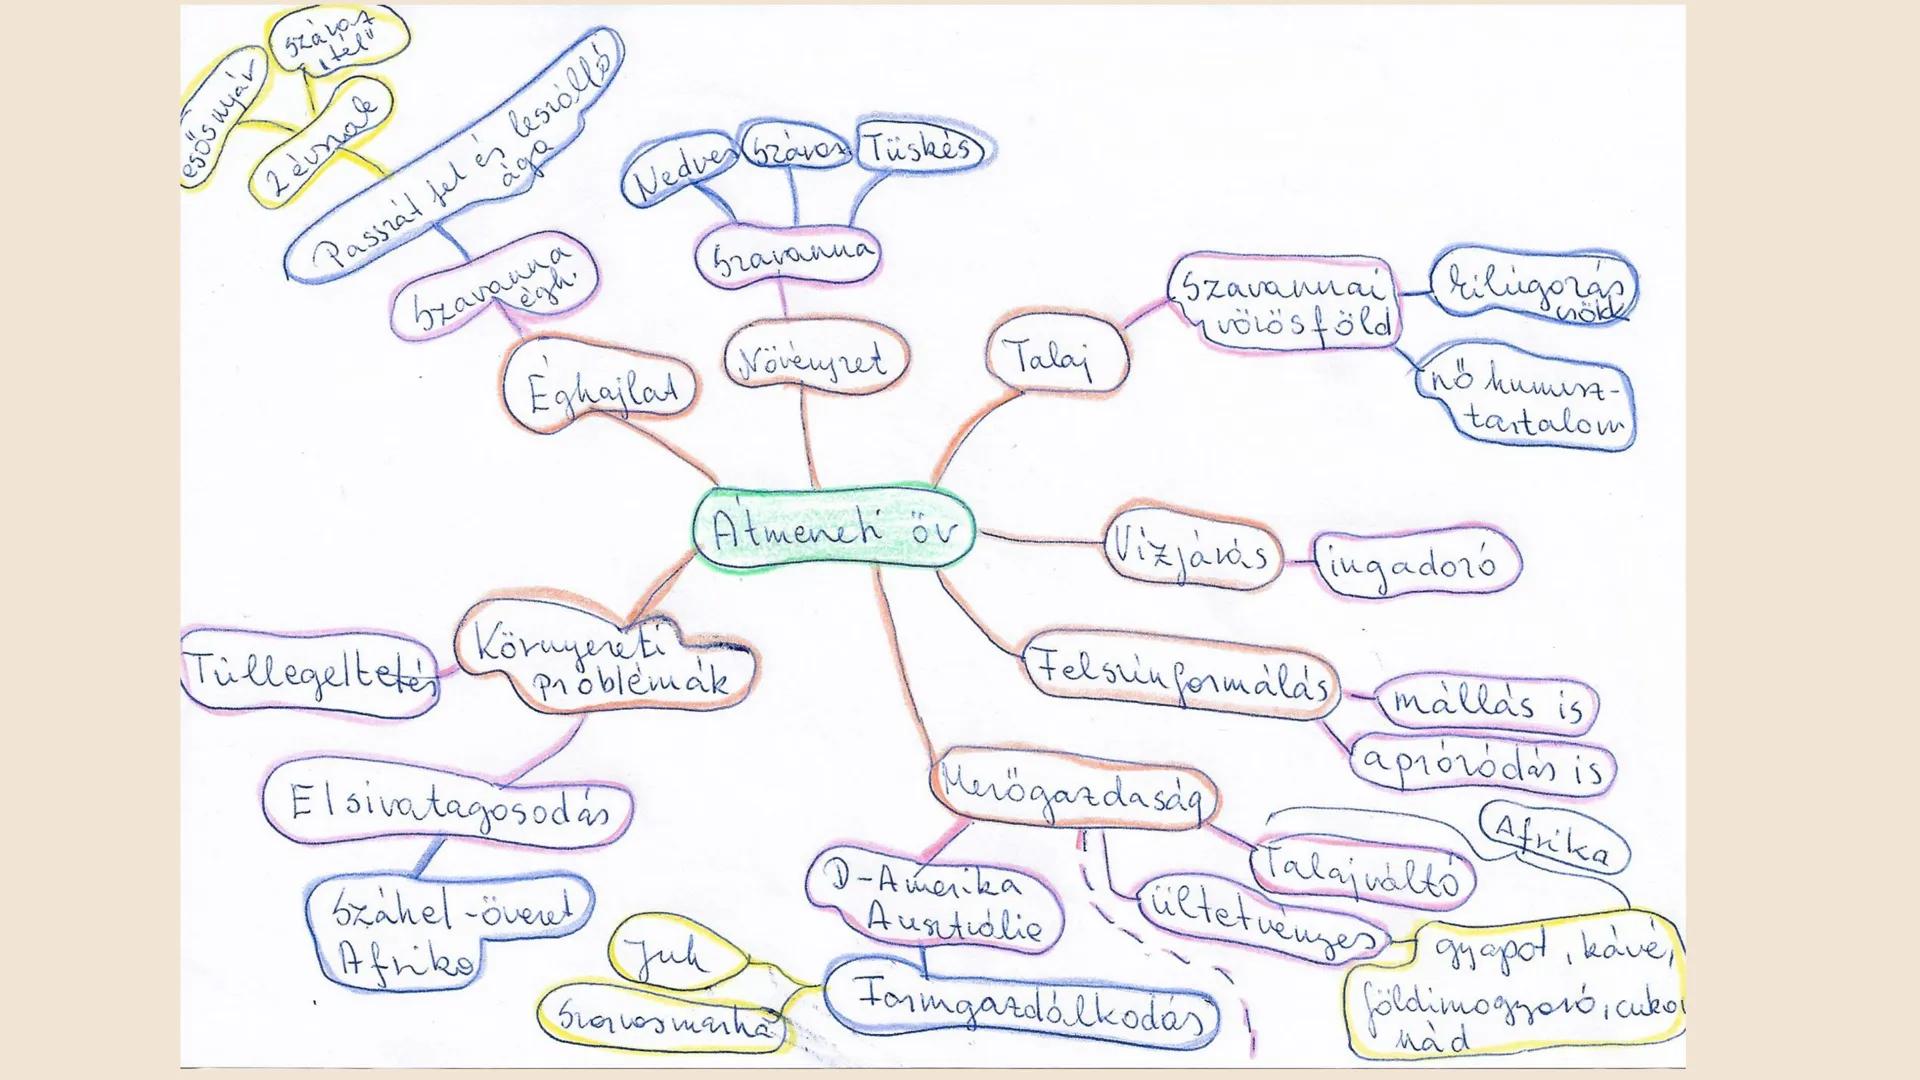 száraz
„tél"
esős nyár
2 évszak
Passzát fel és leszálló
ága
Szavanna
égh.
Éghajlat
Nedves
Száraz
Tüskés
Szavanna
Növényzet
Talaj
Szavannai
vörösföld
kilúgozás
csökk
nő humusz-
tartalom
Átmeneti öv
Vízjárás
ingadozó
Felszínformálás
mállás is
aprózódás is
Környezeti
problémák
Túllegeltetés
Elsivatagosodás
Száhel-övezet
Afrika
Mezőgazdaság
D-Amerika
Ausztrália
Farmgazdálkodás
Juh
Szarvasmarha
Talajváltó
Afrika
ültetvényes
gyapot, kávé,
földimogyoró, cukor
nád